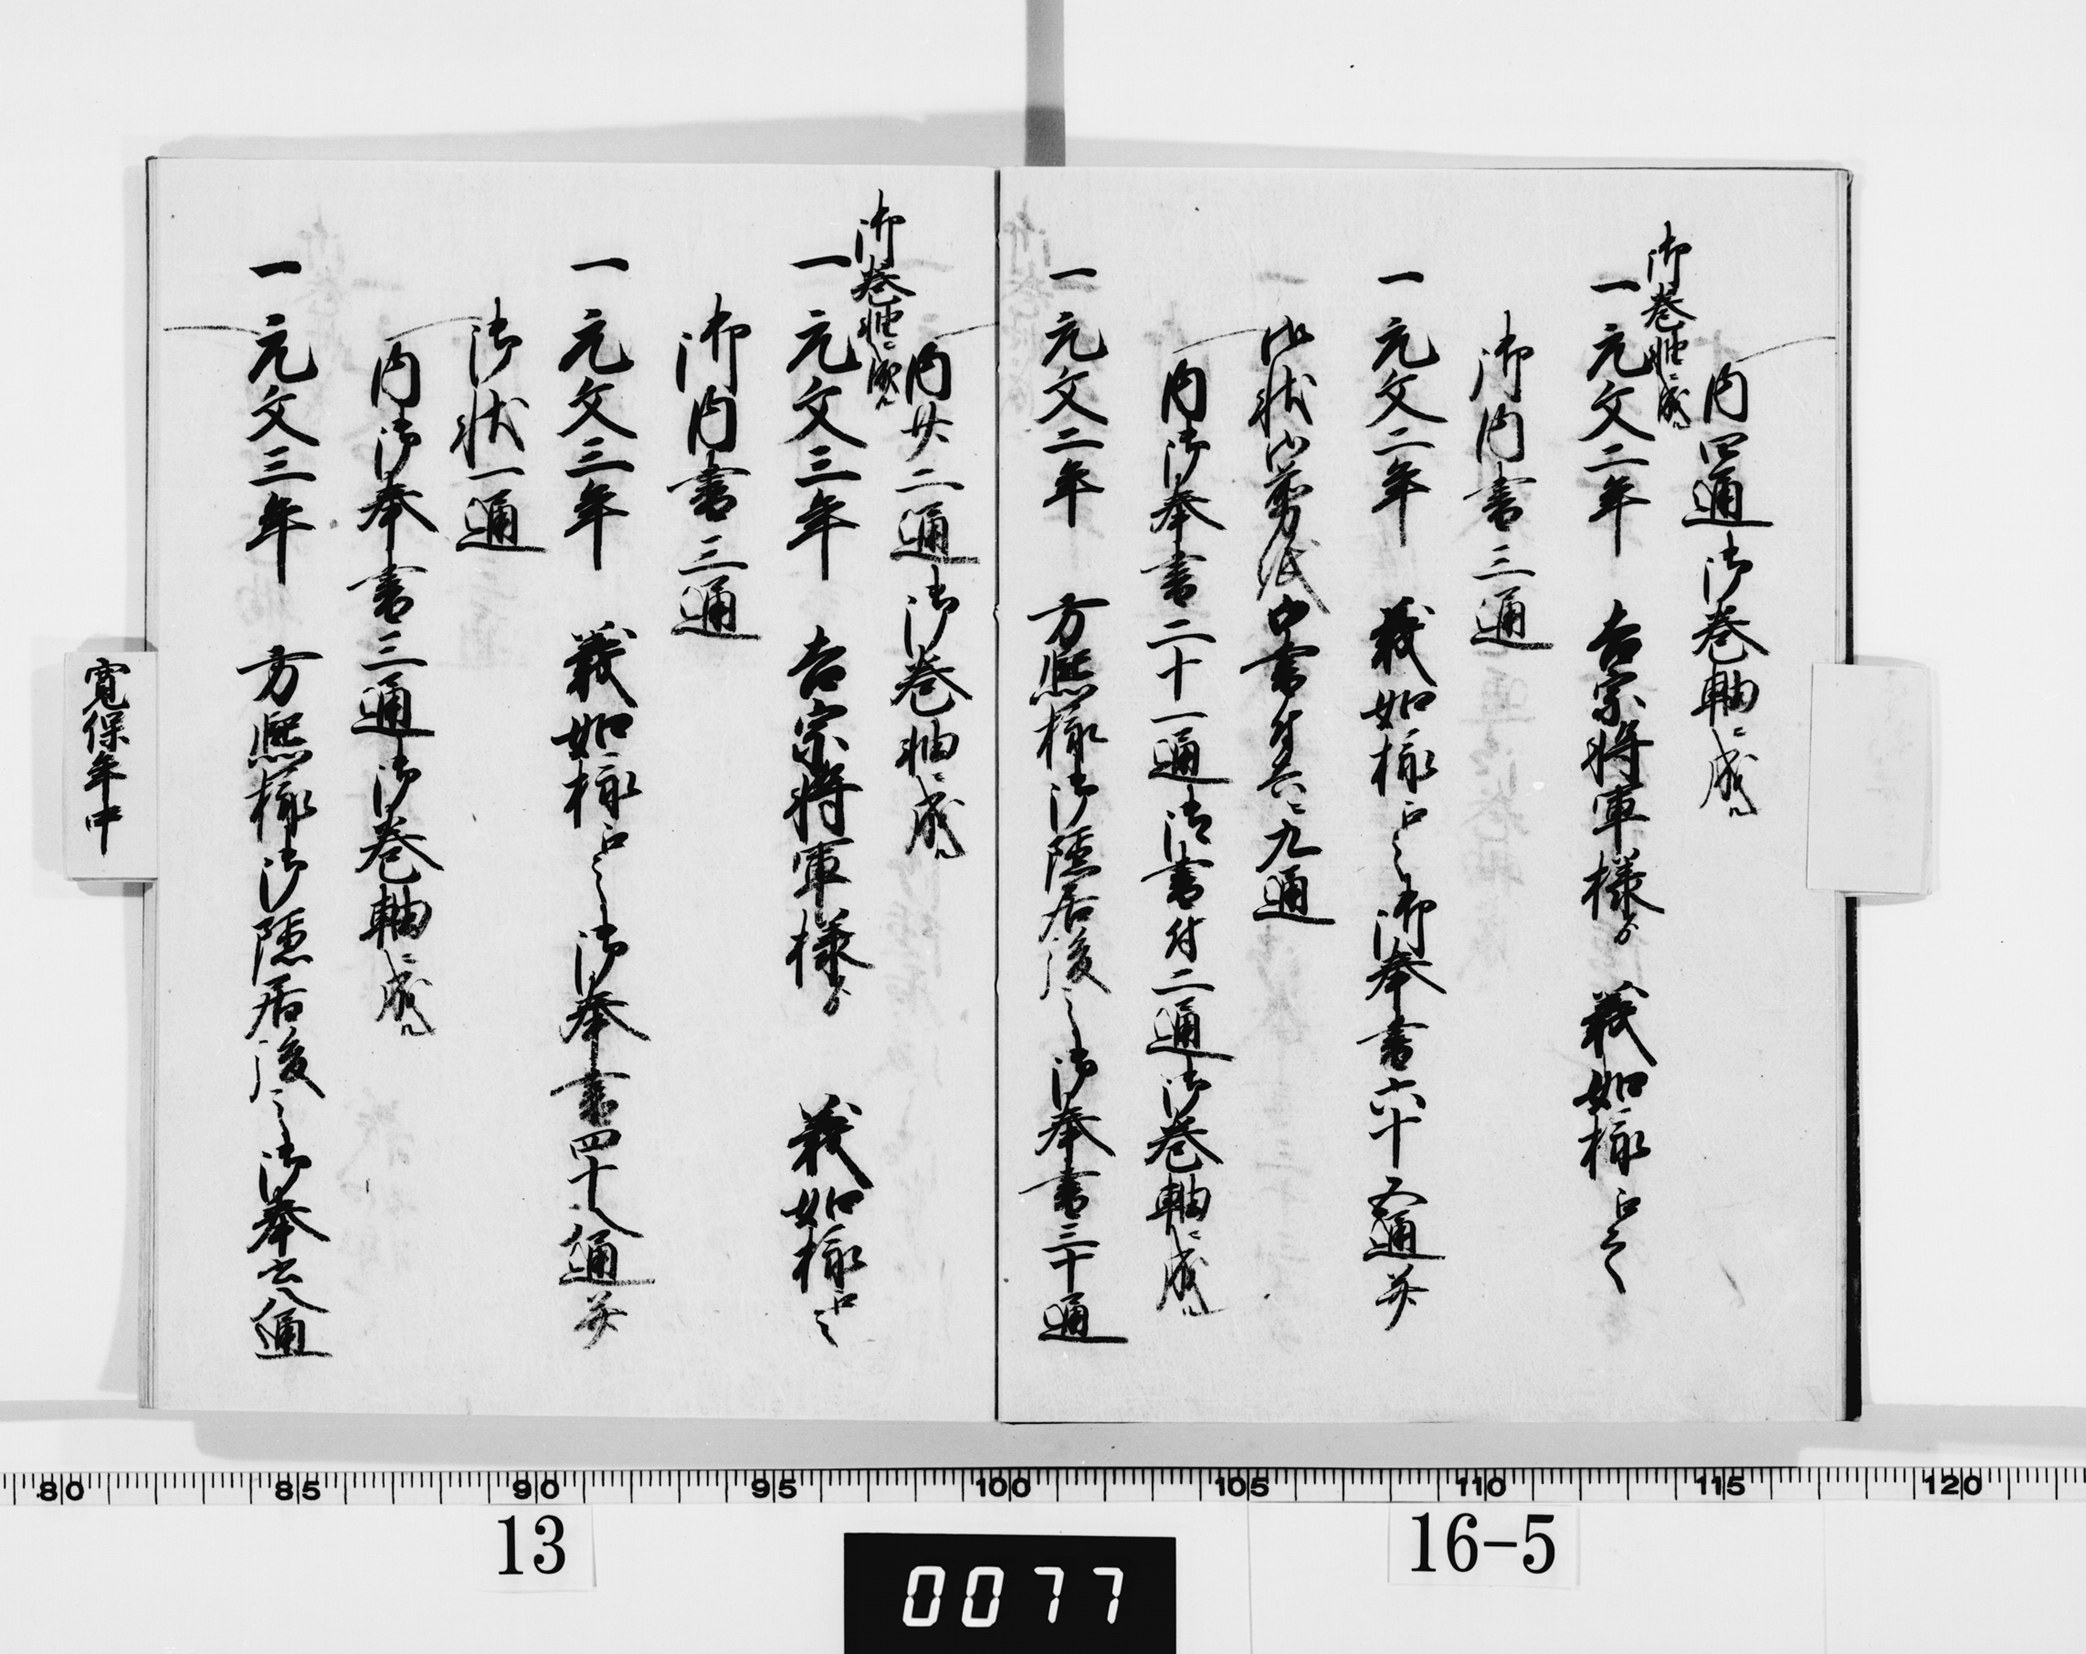 内四通御巻軸ニ成ル
御巻軸ニ成ル
一元文二年 吉宗将軍様ゟ 義如様江之
御内書三通
一元文二年 義如様江之御奉書六十五通并
御状
書付共ニ九通
内御奉書二十一通御書付二通御巻軸ニ成ル
一元文二年 方熈様御隠居後之御奉書三十通
内廿二通御巻軸ニ成ル
御巻軸ニ成ル
一元文三年 吉宗将軍様ゟ 義如様江之
御内書三通
一元文三年 義如様江之御奉書四十八通并
御状一通
内御奉書三通御巻軸ニ成ル
一元文三年 方熈様御隠居後之御奉書八通
寛保年中
80 85 90 95 100 105 110 115 120
13
0077
16-5